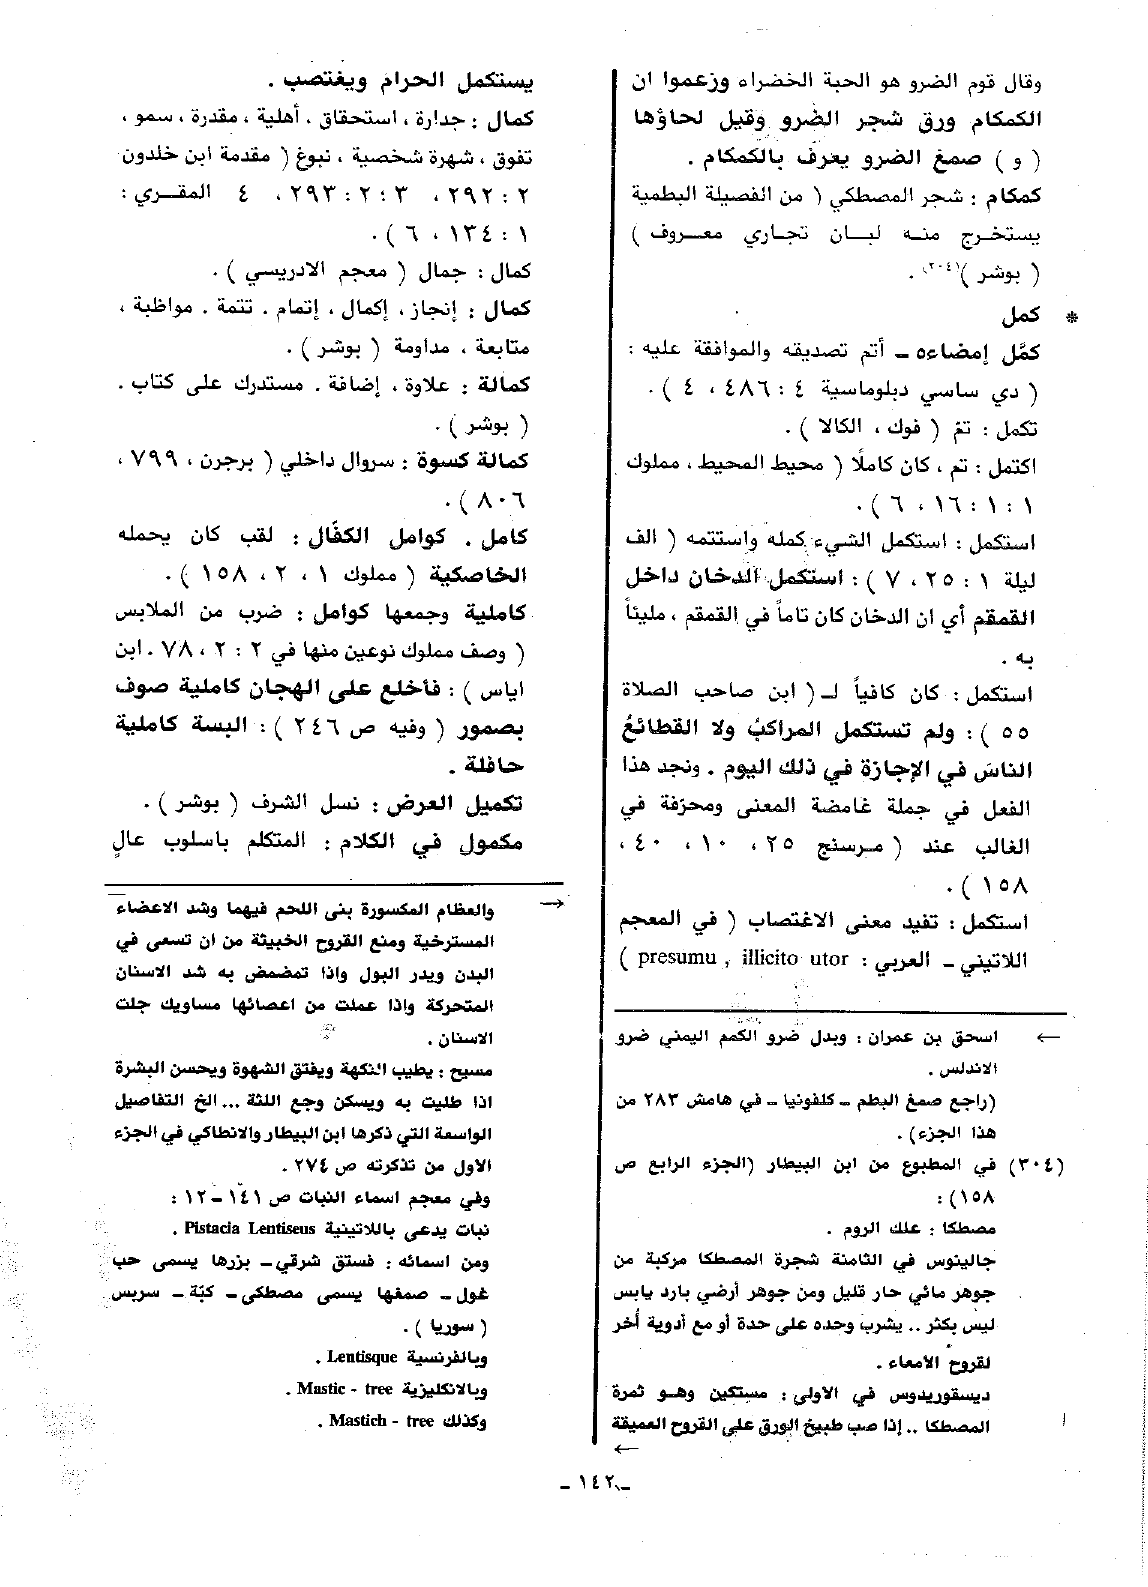 وقال قوم الضرو هو الحبة الخضراء وزعموا ان
الكمكام ورق شجر الضرو وقيل لحاؤها
( و ) صمغ الضرو يعرف بالكمكام .
كمكام : شجر المصطكي ( من الفصيلة البطمية
يستخرج منه لبان تجاري معروف )
( بوشر )(٣٠٤) .
* كمل
كمَّل إمضاءه ــ أتم تصديقه والموافقة عليه :
( دي ساسي دبلوماسية ٤ : ٤٨٦ ، ٤ ) .
تكمل : تمّ ( فوك ، الكالا ) .
اكتمل : تم ، كان كاملًا ( محيط المحيط ، مملوك
١ : ١ : ١٦ ، ٦ ) .
استكمل : استكمل الشيء كمله واستتمه ( الف
ليلة ١ : ٢٥ ، ٧ ) : استكمل الدخان داخل
القمقم أي ان الدخان كان تاماً في القمقم ، مليئاً
به .
استكمل : كان كافياً لـ ( ابن صاحب الصلاة
٥٥ ) : ولم تستكمل المراكبُ ولا القطائعُ
الناسَ في الإجازة في ذلك اليوم . ونجد هذا
الفعل في جملة غامضة المعنى ومحرّفة في
الغالب عند ( مرسنج ٢٥ ، ١٠ ، ٤٠ ،
١٥٨ ) .
استكمل : تفيد معنى الاغتصاب ( في المعجم
اللاتيني ــ العربي : presumu , illicito utor )
← اسحق بن عمران : وبدل ضرو الكمم اليمني ضرو
الاندلس .
(راجع صمغ البطم ــ كلفونيا ــ في هامش ٢٨٣ من
هذا الجزء) .
(٣٠٤) في المطبوع من ابن البيطار (الجزء الرابع ص
١٥٨) :
مصطكا : علك الروم .
جالينوس في الثامنة شجرة المصطكا مركبة من
جوهر مائي حار قليل ومن جوهر أرضي بارد يابس
ليس بكثر .. يشرب وحده على حدة أو مع أدوية أخر
لقروح الأمعاء .
ديسقوريدوس في الاولى : مستكين وهو ثمرة
المصطكا .. إذا صب طبيخ الورق على القروح العميقة
←
يستكمل الحرام ويغتصب .
كمال : جدارة ، استحقاق ، أهلية ، مقدرة ، سمو ،
تفوق ، شهرة شخصية ، نبوغ ( مقدمة ابن خلدون
٢ : ٢٩٢ ، ٣ : ٢ : ٢٩٣ ، ٤ المقري :
١ : ١٣٤ ، ٦ ) .
كمال : جمال ( معجم الادريسي ) .
كمال : إنجاز ، إكمال ، إتمام . تتمة . مواظبة ،
متابعة ، مداومة ( بوشر ) .
كمالة : علاوة ، إضافة . مستدرك على كتاب .
( بوشر ) .
كمالة كسوة : سروال داخلي ( برجرن ، ٧٩٩ ،
٨٠٦ ) .
كامل . كوامل الكفّال : لقب كان يحمله
الخاصكية ( مملوك ١ ، ٢ ، ١٥٨ ) .
كاملية وجمعها كوامل : ضرب من الملابس
( وصف مملوك نوعين منها في ٢ : ٢ ، ٧٨ . ابن
اياس ) : فأخلع على الهجان كاملية صوف
بصمور ( وفيه ص ٢٤٦ ) : البسة كاملية
حافلة .
تكميل العرض : نسل الشرف ( بوشر ) .
مكمول في الكلام : المتكلم باسلوب عالٍ
→ والعظام المكسورة بنى اللحم فيهما وشد الاعضاء
المسترخية ومنع القروح الخبيثة من ان تسعى في
البدن ويدر البول واذا تمضمض به شد الاسنان
المتحركة واذا عملت من اعصائها مساويك جلت
الاسنان .
مسيح : يطيب النكهة ويفتق الشهوة ويحسن البشرة
اذا طليت به ويسكن وجع اللثة ... الخ التفاصيل
الواسعة التي ذكرها ابن البيطار والانطاكي في الجزء
الاول من تذكرته ص ٢٧٤ .
وفي معجم اسماء النبات ص ١٤١ ــ ١٢ :
نبات يدعى باللاتينية Pistacia Lentiseus .
ومن اسمائه : فستق شرقي ــ بزرها يسمى حب
غول ــ صمغها يسمى مصطكى ــ كيّة ــ سريس
( سوريا ) .
وبالفرنسية Lentisque .
وبالانكليزية Mastic - tree .
وكذلك Mastich - tree .
ــ ١٤٢ ــ